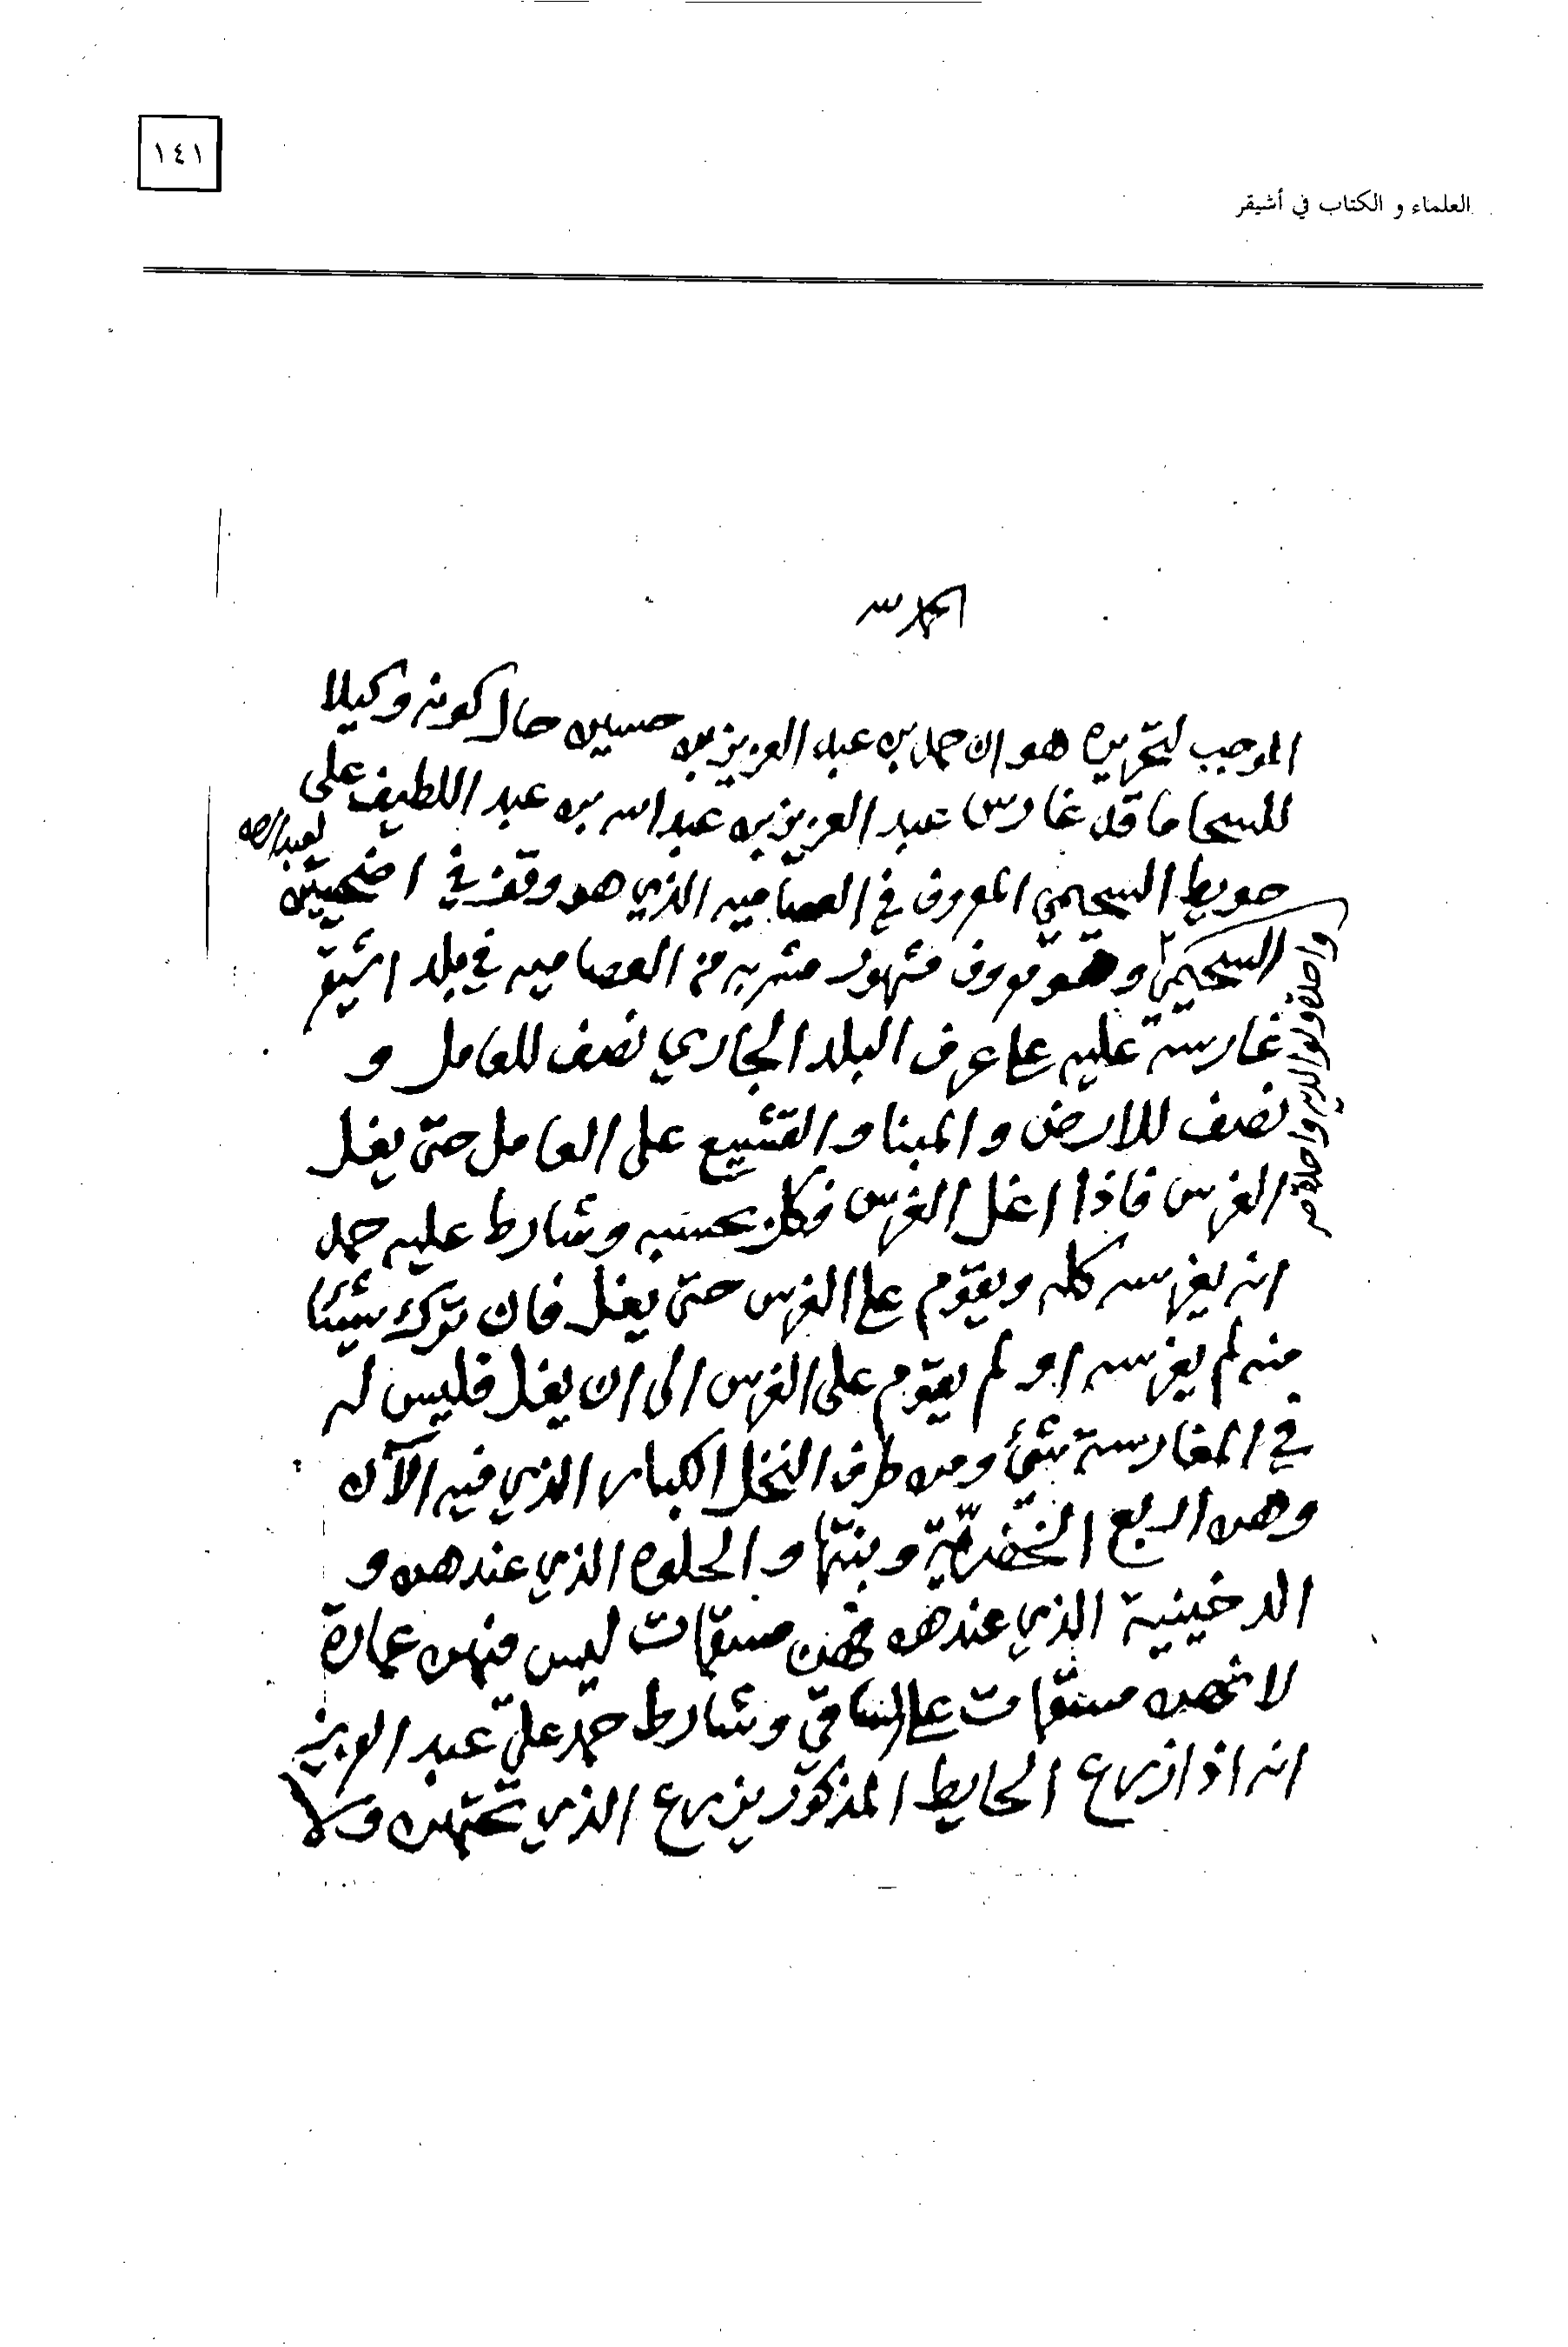 ١٤١
العلماء و الكتاب في أشيقر
الحمد لله
الموجب لتحريره هو ان حمد بن عبد العزيز بن حسين حال كونه وكيلا
قد غارس عبد العزيز بن عبد الله بن عبد اللطيف على
حويط السحيمي المعروف في العصاميه الذي هو وقف في اضحيتين
لعبد الله
السحيمي وهو معروف مشهور مشربه من العصاميه في بلد اشيقر
واحدة له ولوالديه واحدة
غارسه عليه على عرف البلد الجاري نصف للعامل و
نصف للارض والمبنا والتشييع على العامل حتى يغل
الغرس فاذا اغل الغرس فكل بحسبه وشارط عليه حمد
انه يغرسه كله ويقوم على الغرس حتى يغل فان ترك شيئا
منه لم يغرسه او لم يقوم على الغرس الى ان يغل فليس له
في المغارسة شيئ ومن طرف النخل الكبار الذي فيه الآن
وهن اربع الخضرية وبنتها والحلوه الذي عندهن و
الدخينية الذي عندهن فهن مستقمات ليس فيهن عمارة
لانهن مستقمات على الساقي وشارط حمد على عبد العزيز
انه اذا زرع الحايط المذكور يزرع الذي تحتهن ولا